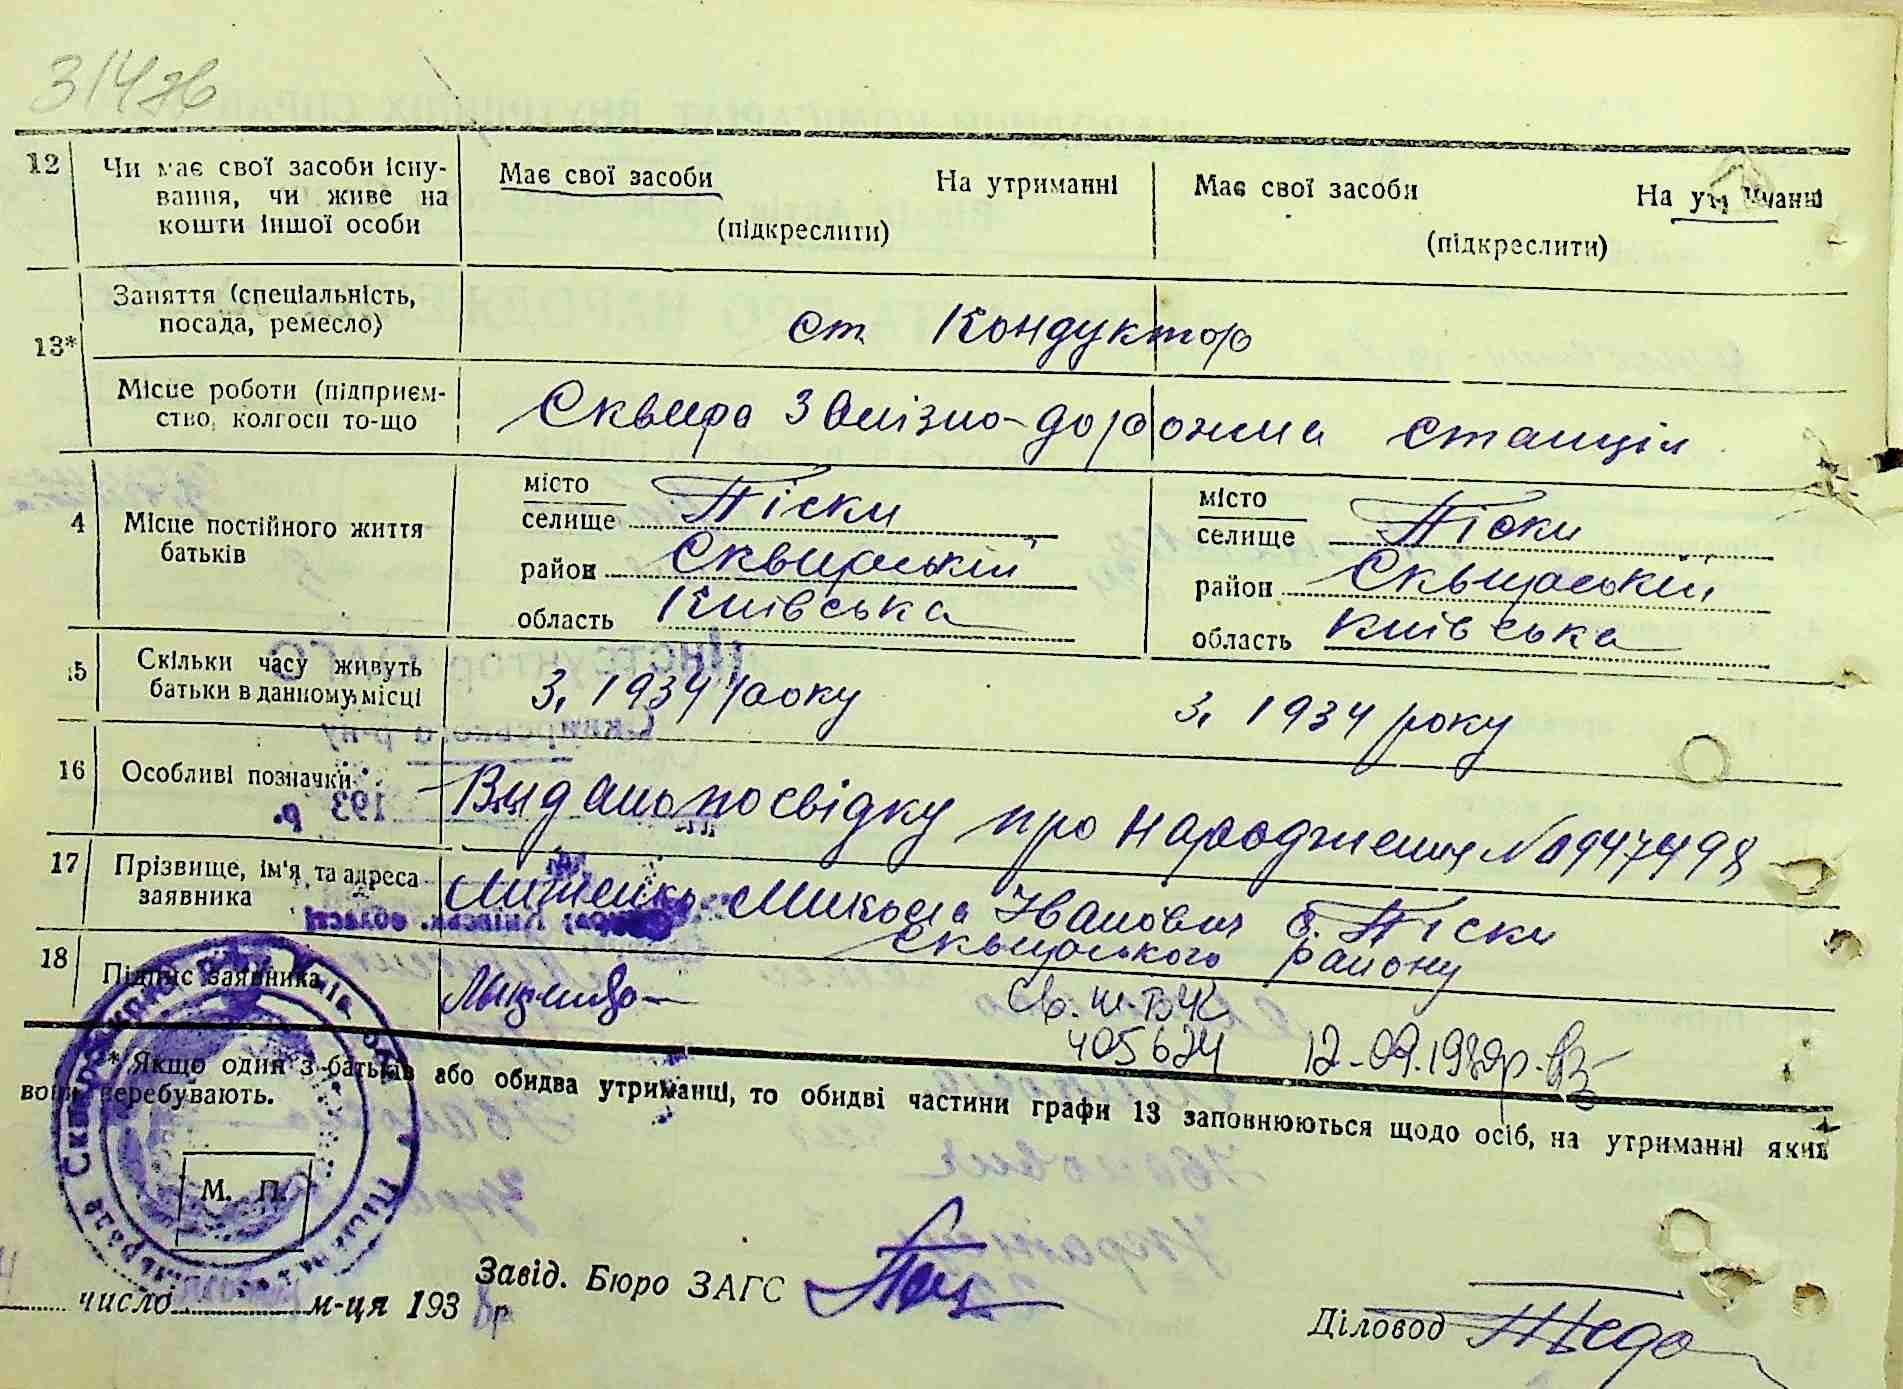 314зв
12 Чи має свої засоби існу-
вання, чи живе на
кошти іншої особи
Має свої засоби На утриманні
(підкреслити)
Має свої засоби На утриманні
(підкреслити)
13*
Заняття (спеціальність,
посада, ремесло)
ст. Кондуктор
Місце роботи (підприєм-
ство, колгосп то-що
Сквира Залізно-дорожна станція
4 Місце постійного життя
батьків
місто
селище Піски
район Сквирський
область Київська
місто
селище Піски
район Сквирський
область Київська
15 Скільки часу живуть
батьки в данному місці
З, 1934 року
З, 1934 року
16 Особливі позначки
Видано посвідку про народження №
17 Прізвище, ім'я та адреса
заявника
Микола Іванович с. Піски
Сквирського району
18 Підпис заявника
405624
* Якщо один з батьків або обидва утриманці, то обидві частини графи 13 заповнюються щодо осіб, на утриманні яких
вони перебувають.
М. П.
число м-ця 1938 р
Завід. Бюро ЗАГС
Діловод